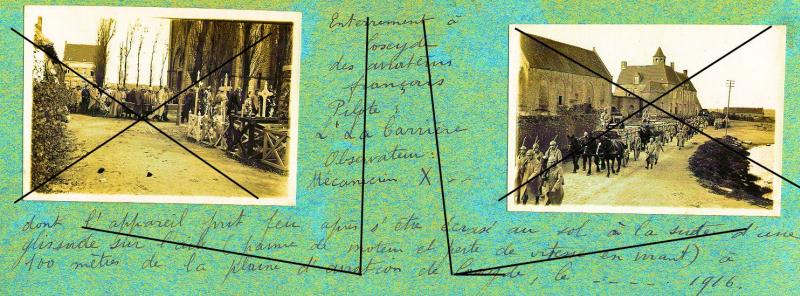 Enterrement à
Coxyde
des aviateurs
français
Pilote :
Lt La barrière
Observateur :
Mécanicien X --
dont l'appareil prit feu après s'être écrasé au sol à la suite d'une
glissade sur l'aile (panne de moteur et perte de vitesse en virant) à
100 mètres de la plaine d'aviation de Coxyde, le ----- 1916.